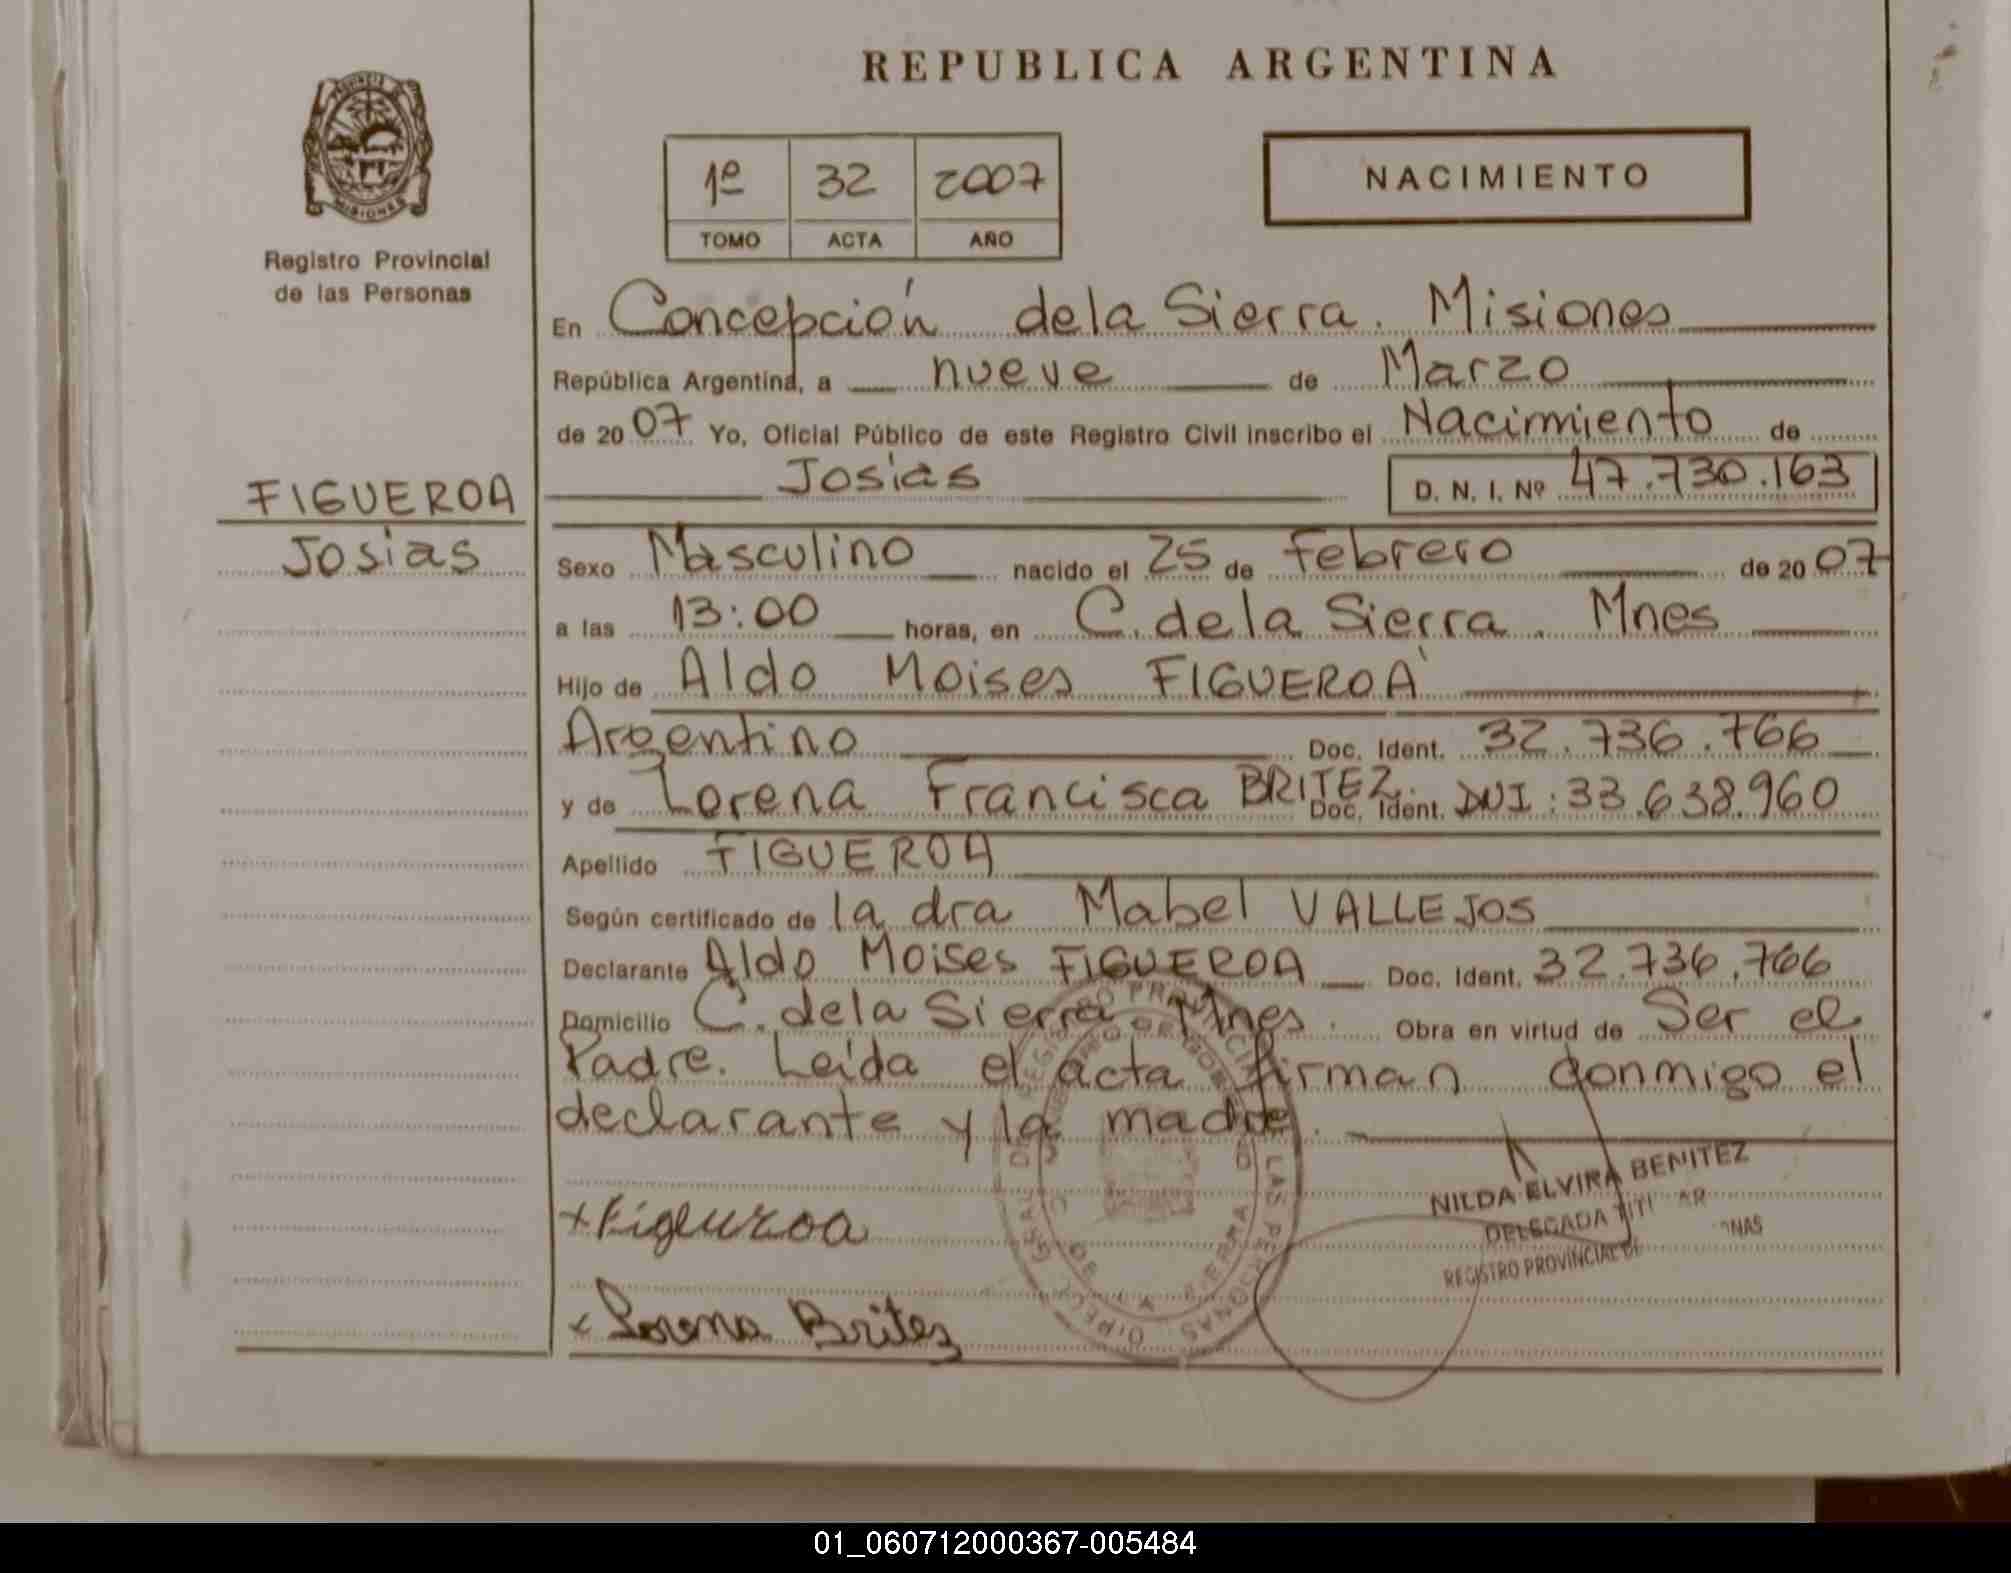 REPUBLICA ARGENTINA
PROVINCIA DE
MISIONES
Registro Provincial
de las Personas
1º 32 2007
TOMO ACTA AÑO
NACIMIENTO
En Concepción de la Sierra. Misiones
República Argentina, a nueve de Marzo
de 2007 Yo, Oficial Público de este Registro Civil inscribo el Nacimiento de
Josias D. N. I. Nº 47.730.163
FIGUEROA
Josias
Sexo Masculino nacido el 25 de Febrero de 2007
a las 13:00 horas, en C. de la Sierra. Mnes
Hijo de Aldo Moises FIGUEROA
Argentino Doc. Ident. 32.736.766
y de Lorena Francisca BRITEZ. Doc. Ident. DNI: 33.638.960
Apellido FIGUEROA
Según certificado de la dra Mabel VALLEJOS
Declarante Aldo Moises FIGUEROA Doc. Ident. 32.736.766
Domicilio C. de la Sierra. Mnes. Obra en virtud de Ser el
Padre. Leída el acta firman conmigo el
declarante y la madre.
NILDA ELVIRA BENITEZ
DELEGADA TIT AR
REGISTRO PROVINCIAL DE NAS
x Figueroa
x Lorena Britez
01_060712000367-005484